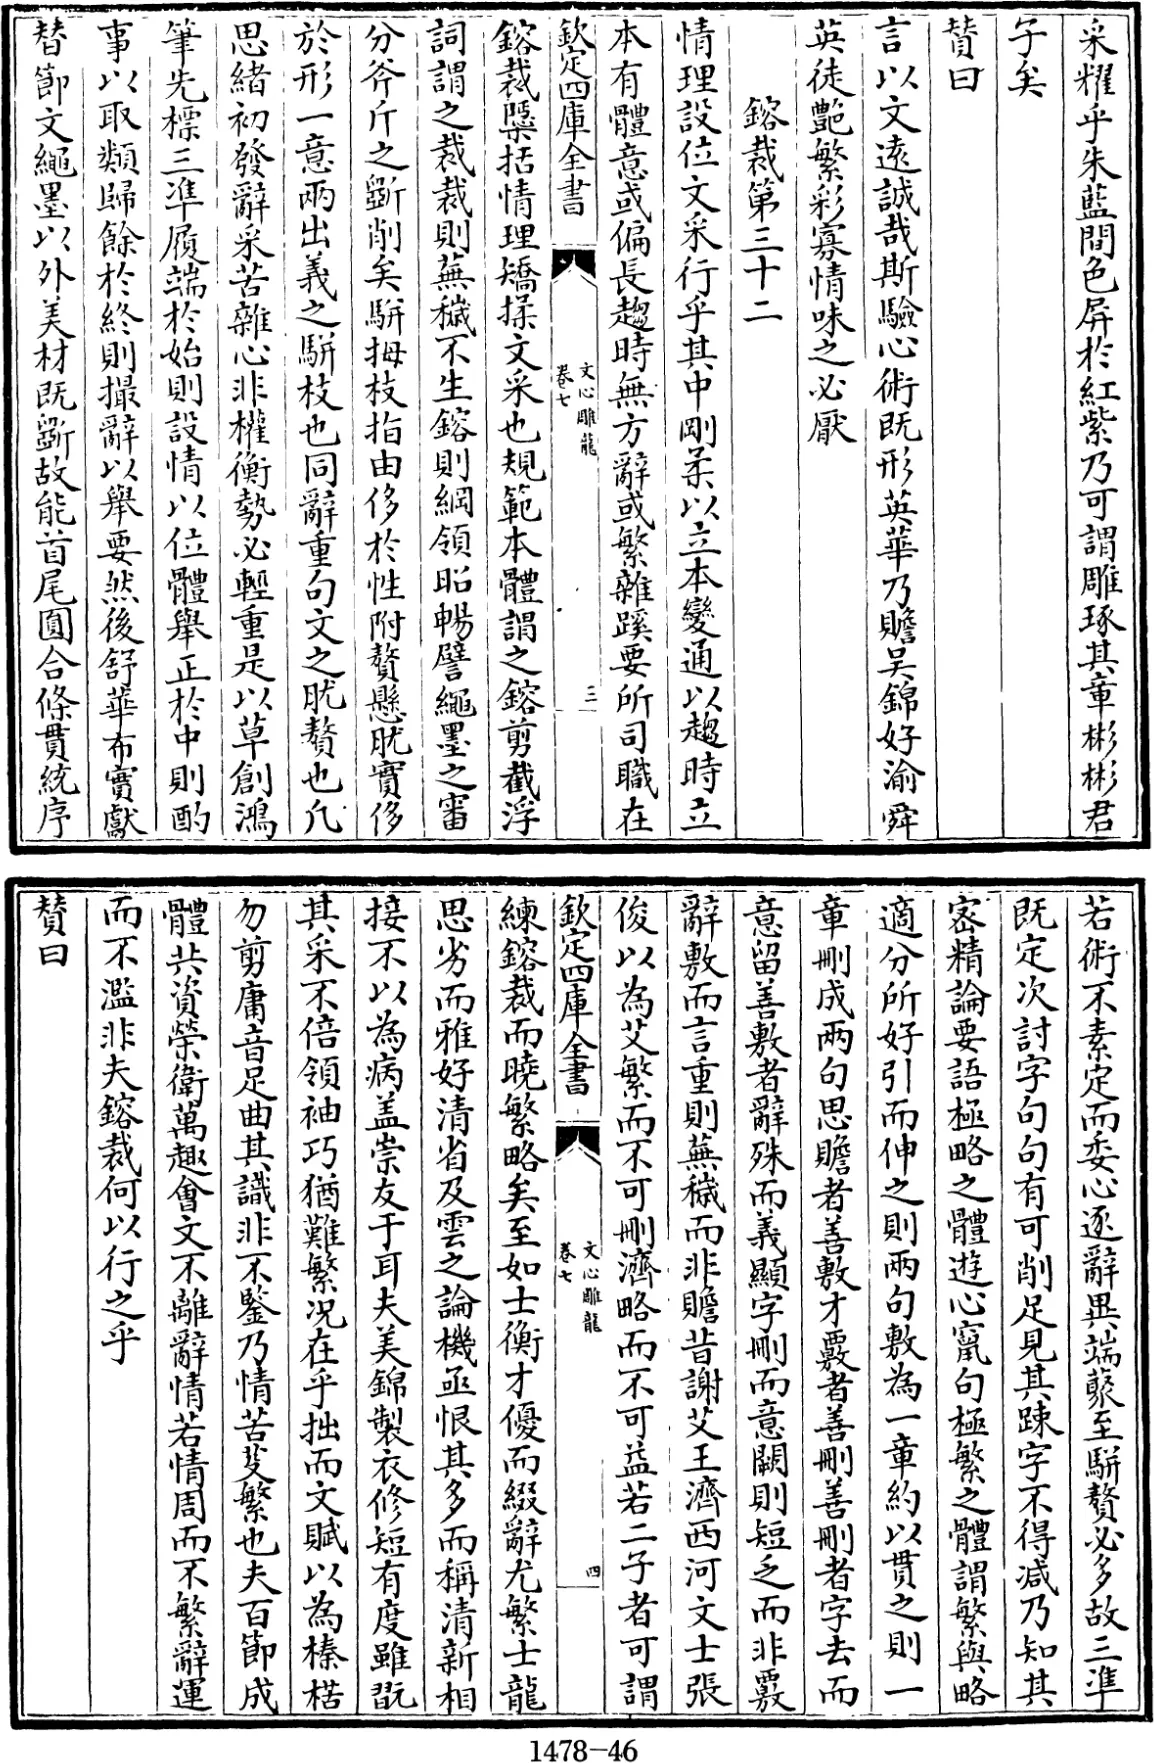 采耀乎朱藍間色屏於紅紫乃可謂雕琢其章彬彬君
子矣
賛曰
言以文遠誠哉斯驗心術既形英華乃贍吳錦好渝舜
英徒艷繁彩寡情味之必厭
鎔裁第三十二
情理設位文采行乎其中剛柔以立本變通以趨時立
本有體意或偏長趨時無方辭或繁雜蹊要所司職在
欽定四庫全書
文心雕龍
卷七
三
鎔裁檃括情理矯揉文采也規範本體謂之鎔剪截浮
詞謂之裁裁則蕪穢不生鎔則綱領昭暢譬繩墨之審
分斧斤之斵削矣駢拇枝指由侈於性附贅懸肬實侈
於形一意兩出義之駢枝也同辭重句文之肬贅也凡
思緒初發辭采苦雜心非權衡勢必輕重是以草創鴻
筆先標三準履端於始則設情以位體舉正於中則酌
事以取類歸餘於終則撮辭以舉要然後舒華布實獻
替節文繩墨以外美材既斵故能首尾圓合條貫統序
若術不素定而委心逐辭異端藂至駢贅必多故三準
既定次討字句句有可削足見其踈字不得減乃知其
宻精論要語極略之體遊心竄句極繁之體謂繁與略
適分所好引而伸之則兩句敷為一章約以貫之則一
章刪成兩句思贍者善敷才覈者善刪善刪者字去而
意留善敷者辭殊而義顯字刪而意闕則短乏而非覈
辭敷而言重則蕪穢而非贍昔謝艾王濟西河文士張
俊以為艾繁而不可刪濟略而不可益若二子者可謂
欽定四庫全書
文心雕龍
卷七
四
練鎔裁而曉繁略矣至如士衡才優而綴辭尤繁士龍
思劣而雅好清省及雲之論機亟恨其多而稱清新相
接不以為病盖崇友于耳夫美錦製衣修短有度雖翫
其采不倍領袖巧猶難繁况在乎拙而文賦以為榛楛
勿剪庸音足曲其識非不鑒乃情苦芟繁也夫百節成
體共資榮衛萬趣會文不離辭情若情周而不繁辭運
而不濫非夫鎔裁何以行之乎
賛曰
1478-46